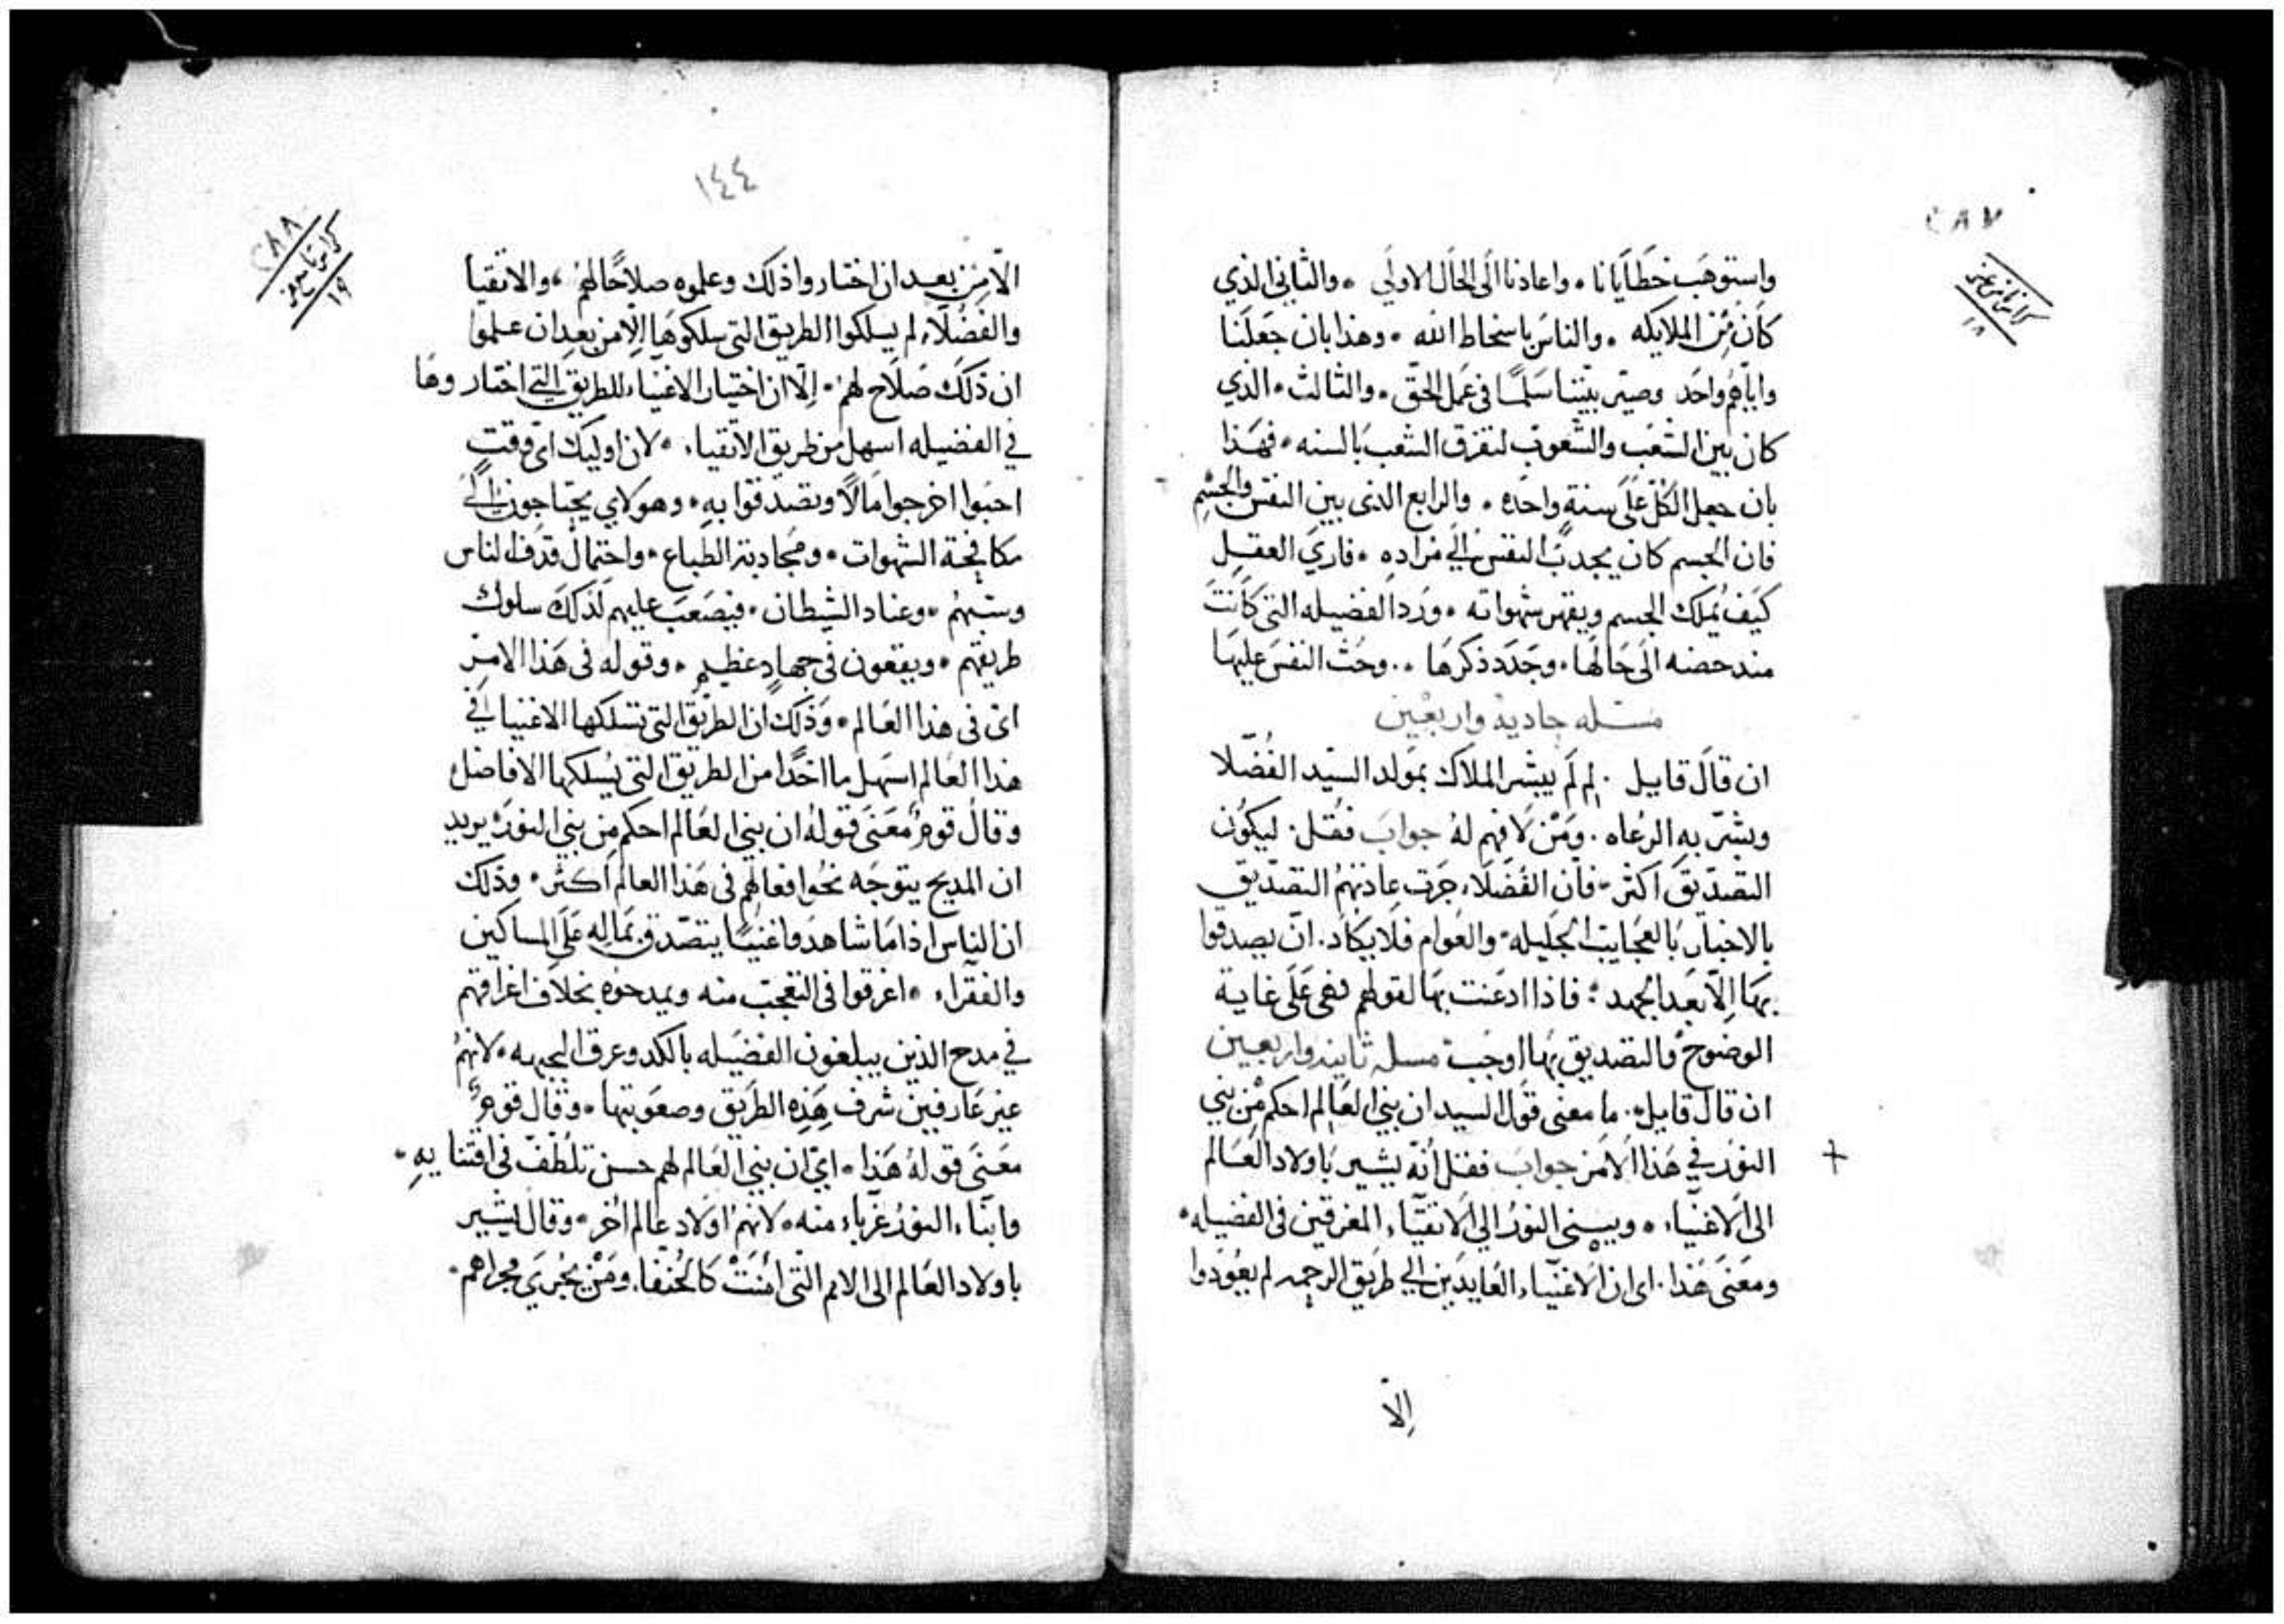 ٢٨٧
كراس ثامن عشر
١٨
واستوهب خطايانا ٠ واعادنا الى الحال الاولى ٠ والثاني الذي
كان من الملايكه ٠ والناس باسخاط الله ٠ وهذا بان جعلنا
واياهم واحد وصير بيننا سلمًا في عمل الحق ٠ والثالث ٠ الذي
كان بين الشعب والشعوب لتفرق الشعب بالسنه ٠ فهذا
بان جعل الكل على سنةٍ واحده ٠ والرابع الذى بين النفس والجسم
فان الجسم كان يجدب النفس الي مراده ٠ فاري العقل
كيف يملك الجسم ويقهر شهواته ٠ ورد الفضيله التى كانت
مندحضه الى حالها ٠ وجدد ذكرها ٠٠ وحث النفس عليها
مسله حاديه واربعين
ان قال قايل ٠ لِم لَم يبشر الملاك بمولد السيد الفضلا
وبشر به الرعاه ٠ ومن لا فهم له جواب فقل ٠ ليكون
التصديق اكثر ٠ فان الفضلاء جرت عادتهم التصديق
بالاخبار بالعجايب الجليله ٠ والعوام فلا يكاد ٠ ان يصدقوا
بها إلّا بعد الجهد ٠ فاذا ادعنت بها لقولهم فهى على غاية
الوضوح والتصديق بها اوجب ٠ مسله ثانيه واربعين
ان قال قايل ٠ ما معنى قول السيد ان بني العالم احكم من بني
النور في هذا الامر جواب فقل انه يشير باولاد العالم
الى الاغنياء ٠ وببنى النور الي الاتقياء المغرقين فى الفضيله ٠
ومعنى هذا ٠ اى ان الاغنياء العايدين الي طريق الرحمه لم يعودوا
إلّا
١٤٤
٢٨٨
كراس تاسع عشر
١٩
الّا من بعد ان اختاروا ذلك وعلموه صلاحًا لهم ٠ والاتقيا
والفضلاء لم يسلكوا الطريق التى سلكوها إلّا من بعد ان علموا
ان ذلك صلاح لهم ٠ إلّا ان اختيار الاغنياء للطريق التي اختاروها
في الفضيله اسهل من طريق الاتقياء ٠ لان اوليك اى وقت
احبوا اخرجوا مالًا وتصدقوا به ٠ وهولاي يحتاجون الى
مكافحة الشهوات ٠ ومجادبة الطباع ٠ واحتمال قدف الناس
وسبهم ٠ وعناد الشيطان ٠ فيصعب عليهم لذلك سلوك
طريقهم ٠ ويقعون في جهادٍ عظيم ٠ وقوله فى هذا الامر
اى فى هذا العالم ٠ وذلك ان الطريق التى تسلكها الاغنيا في
هذا العالم اسهل ماخدًا من الطريق التى يسلكها الافاضل
وقال قوم معنى قوله ان بني العالم احكم من بني النور يريد
ان المديح يتوجه نحو افعالهم فى هذا العالم اكثر ٠ وذلك
ان الناس اذا ما شاهدوا غنيًا يتصدق بماله على المساكين
والفقراء ٠ اغرقوا فى التعجب منه ويمدحوه بخلاف اغراقهم
في مدح الذين يبلغون الفضيله بالكد وعرق الجبهه ٠ لانهم
غير عارفين شرف هذه الطريق وصعوبتها ٠ وقال قومٌ
معنى قوله هذا ٠ اي ان بني العالم لهم حسن تلطف فى اقتنايه ٠
وابناء النور غرباء منه ٠ لانهم اولاد عالم اخر ٠ وقال يشير
باولاد العالم الى الامم التى امنت كالحنفا ٠ ومن يجري مجراهم ٠